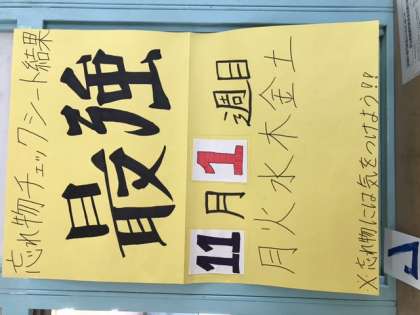 忘れ物チェックシート結果
最強
11月1週目
月火水木金土
※忘れ物には気をつけよう??